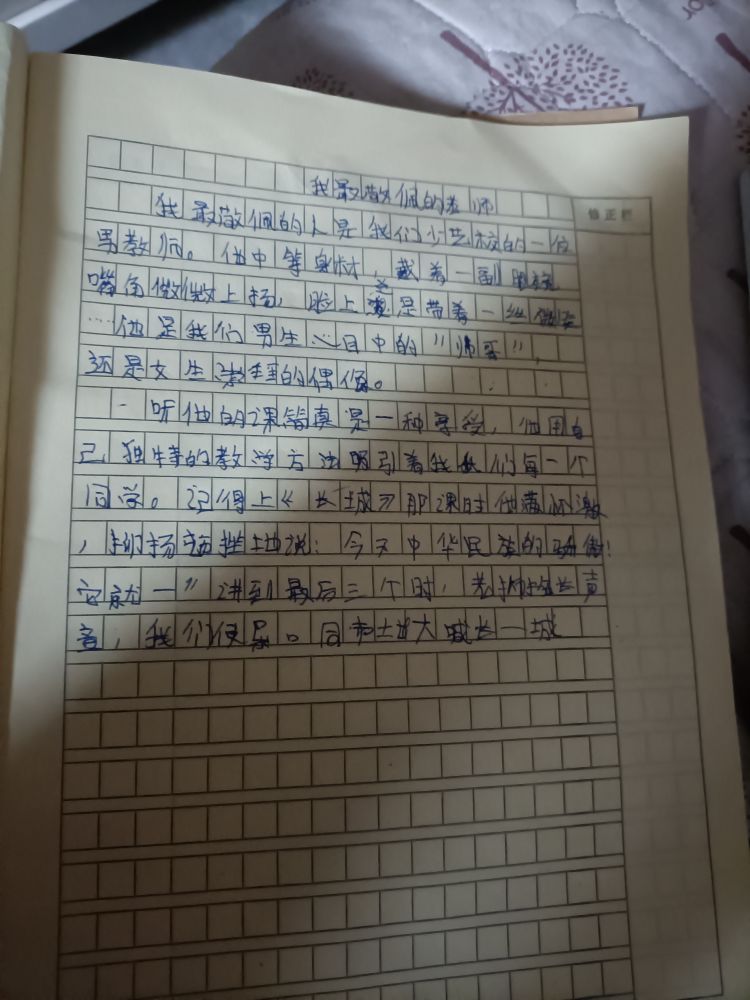 我最敬佩的老师
修正栏
我最敬佩的人是我们少艺校的一位
男教师。他中等身材，戴着一副眼镜
嘴角微微上扬，脸上总是带着一丝微笑
…他是我们男生心目中的"师哥"，
还是女生的偶像。
听他的课简真是一种享受，他用自
己独特的教学方法吸引着我们每一个
同学。记得上《长城》那课时他满怀激
，抑扬顿挫地说：今天中华民族的骄傲！
它就一"讲到最后三个时，老师拖长声
音，我们便异口同声地大喊长一城